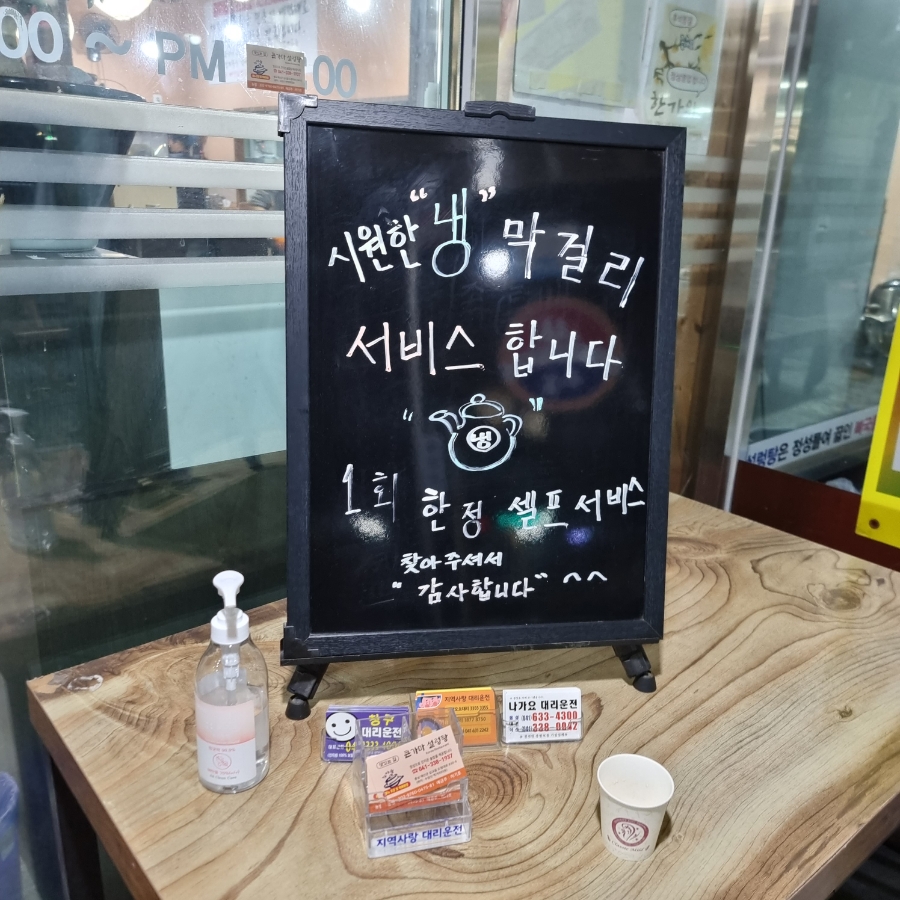 00 ~ PM 00
시원한 "냉" 막걸리
서비스 합니다
" 냉 "
1회 한정 셀프서비스
찾아주셔서
"감사합니다" ^^
설렁탕은 정성들여 끓인
대리운전
지역사랑 대리운전
나가요 대리운전
633-4300
338-0042
☎041-338-1707
지역사랑 대리운전